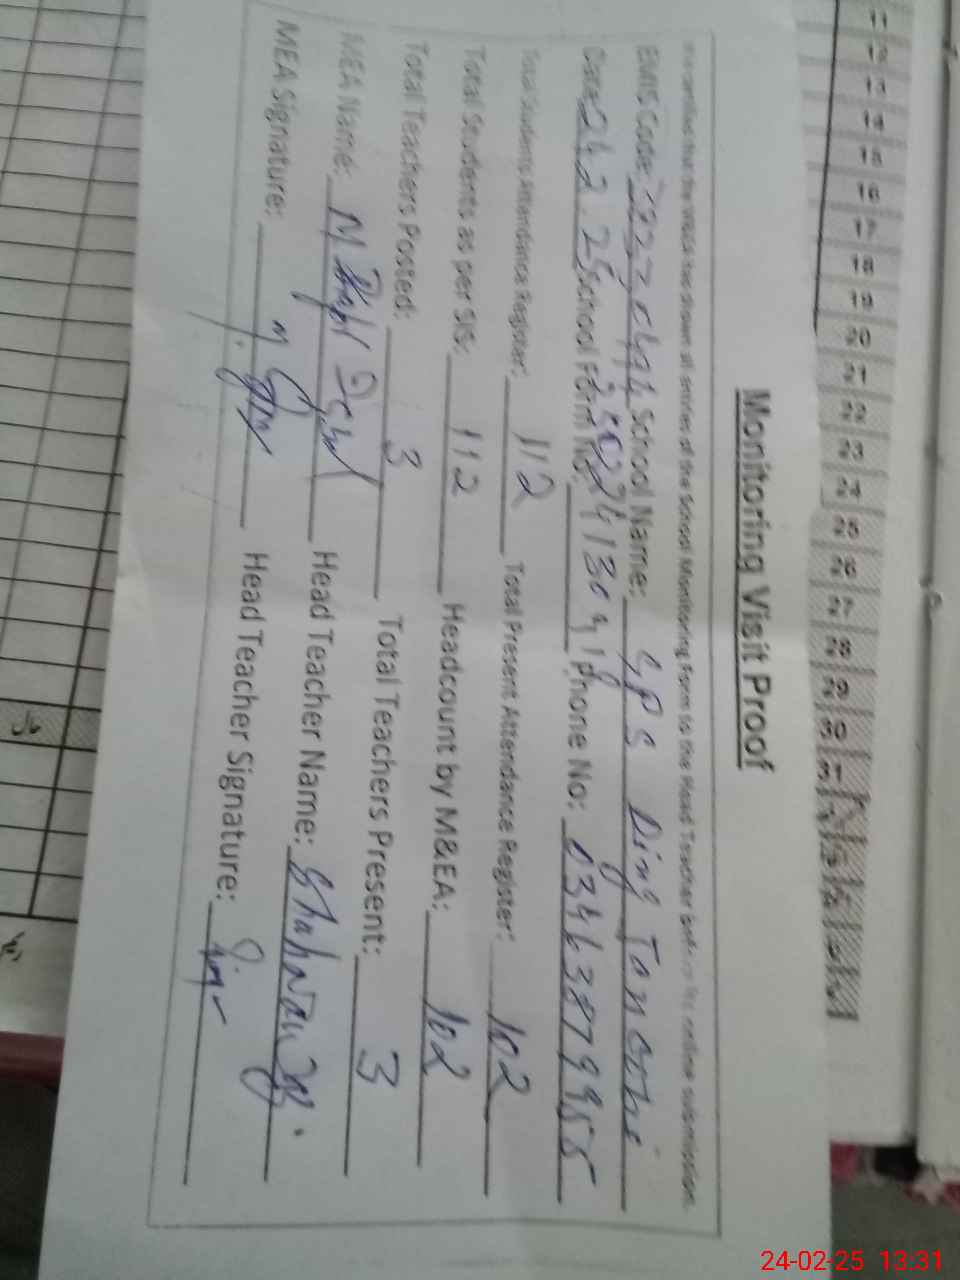 Monitoring Visit Proof
It is certified that the M&EA has shown all entries of the School Monitoring Form to the Head Teacher before its online submission.
EMIS Code: School Name: GPS Ding
Date: 24.2.25 School Form No: Phone No: 03463879955
Total Students Attendance Register: 112 Total Present Attendance Register: 102
Total Students as per SIS: 112 Headcount by M&EA: 102
Total Teachers Posted: 3 Total Teachers Present: 3
MEA Name: M Head Teacher Name: Shahnawaz
MEA Signature: Head Teacher Signature:
11
12
13
14
15
16
17
18
19
20
21
22
23
24
25
26
27
28
29
30
31
24-02-25 13:31